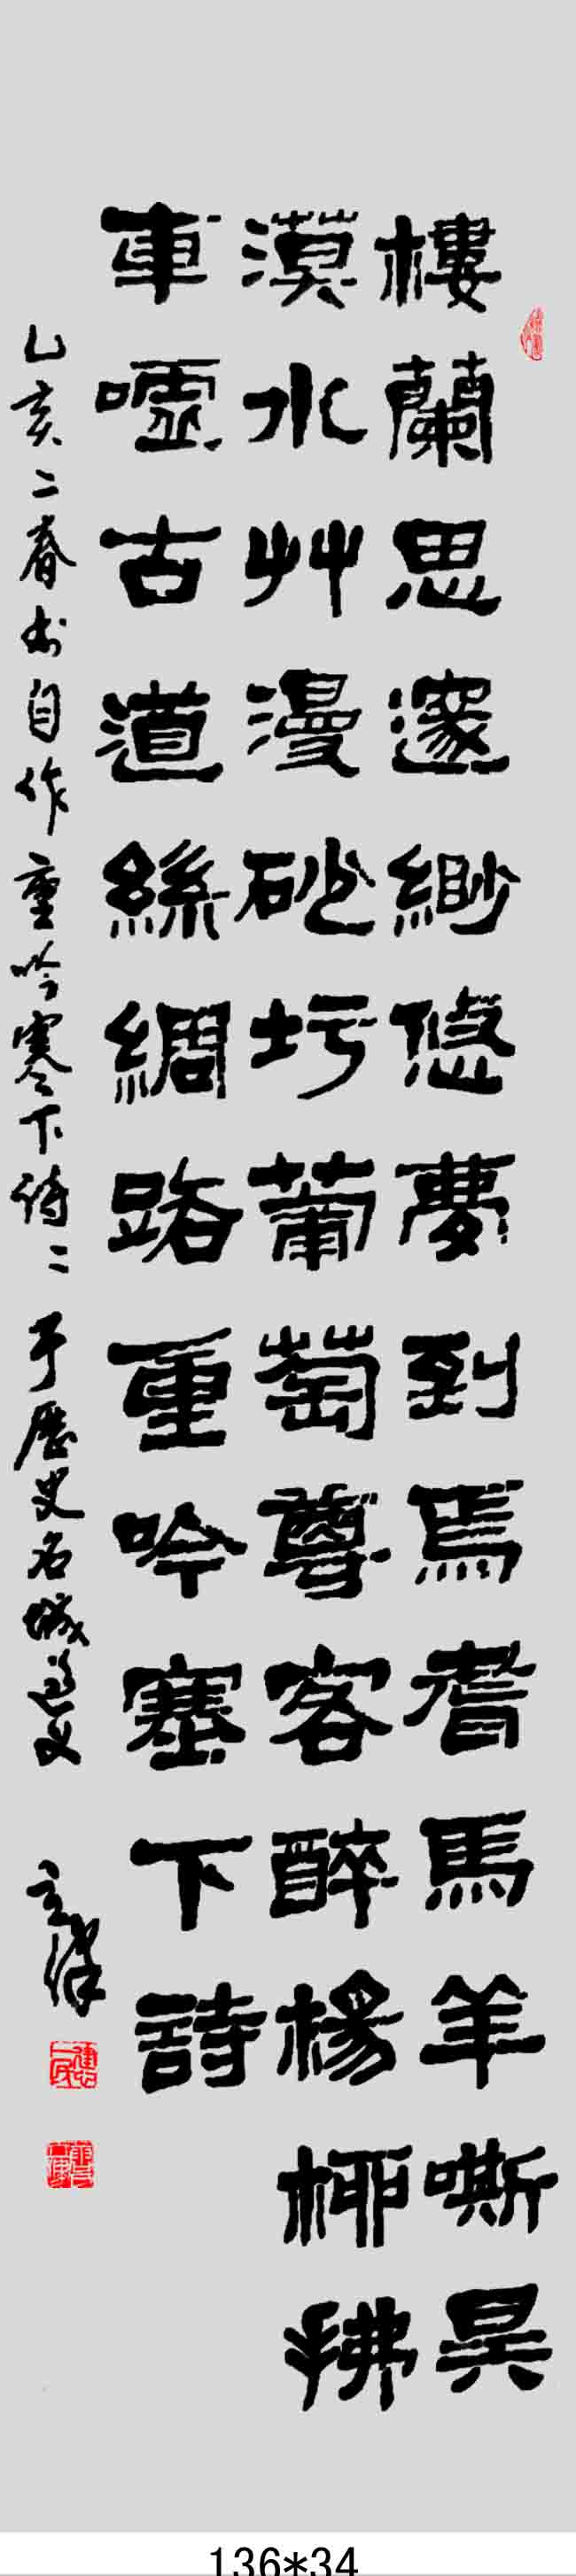 樓蘭思邃緲悠夢到焉耆馬羊嘶昊
漠水艸漫砂圬葡萄尊客醉楊柳拂
車嘘古道絲綢路重吟塞下詩
乙亥二春書自作重吟塞下诗二于歷史名城遵义
136*34